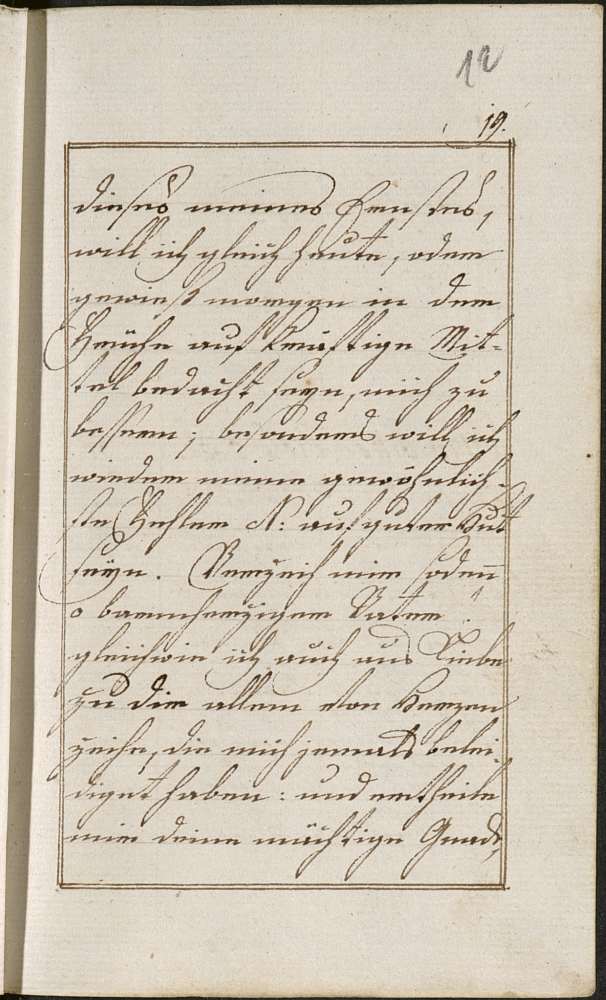 12
19.
dieses meines Ernstes,
will ich gleich heute, oder
gewieß morgen in der
Frühe auf kräftige Mit=
tel bedacht seyn, mich zu
bessern; besonders will ich
wieder meine gewöhnlich=
ste Fehler N: auf guter Hut
seyn. Verzeih mir sodenn
o barmherziger Vater!
gleichwie ich auch aus Liebe
zu dir allem von Herzen
zeihe, die mich jemals belei
diget haben: und ertheile
mir deine mächtige Gnade,